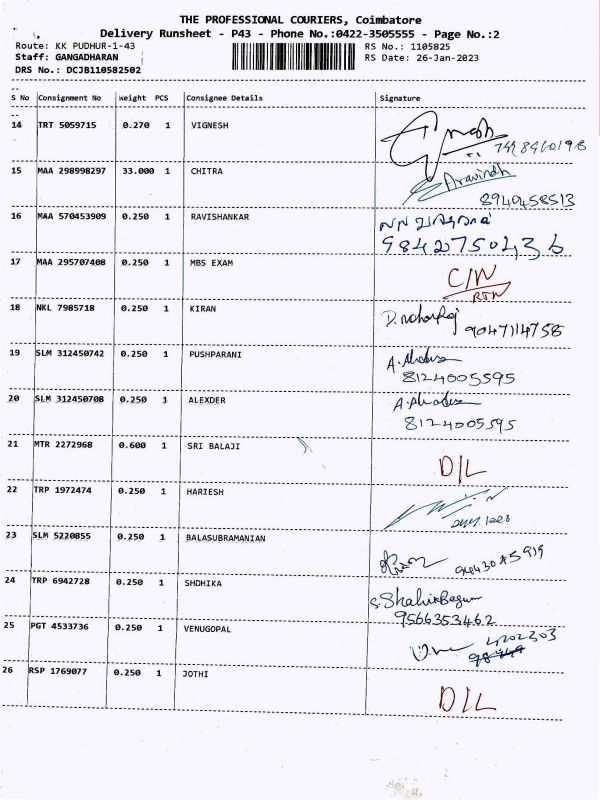 THE PROFESSIONAL COURIERS, Coimbatore
Delivery Runsheet - P43 - Phone No.:0422-3505555 - Page No.:2
Route: KK PUDHUR-1-43 RS No.: 1105825
Staff: GANGADHARAN RS Date: 26-Jan-2023
DRS No.: DCJB110582502
S No Consignment No Weight PCS Consignee Details Signature
14 TRT 5059715 0.270 1 VIGNESH
15 MAA 298998297 33.000 1 CHITRA Aravindh
8940458513
16 MAA 570453909 0.250 1 RAVISHANKAR
9842750436
17 MAA 295707408 0.250 1 MBS EXAM C/N
RTN
18 NKL 7985718 0.250 1 KIRAN
9047114758
19 SLM 312450742 0.250 1 PUSHPARANI
8124005595
20 SLM 312450708 0.250 1 ALEXDER
8124005595
21 MTR 2272968 0.600 1 SRI BALAJI D/L
22 TRP 1972474 0.250 1 HARIESH
23 SLM 5220855 0.250 1 BALASUBRAMANIAN
24 TRP 6942728 0.250 1 SHDHIKA S. Shahi Begum
9566353462
25 PGT 4533736 0.250 1 VENUGOPAL 4202303
26 RSP 1769077 0.250 1 JOTHI D/L